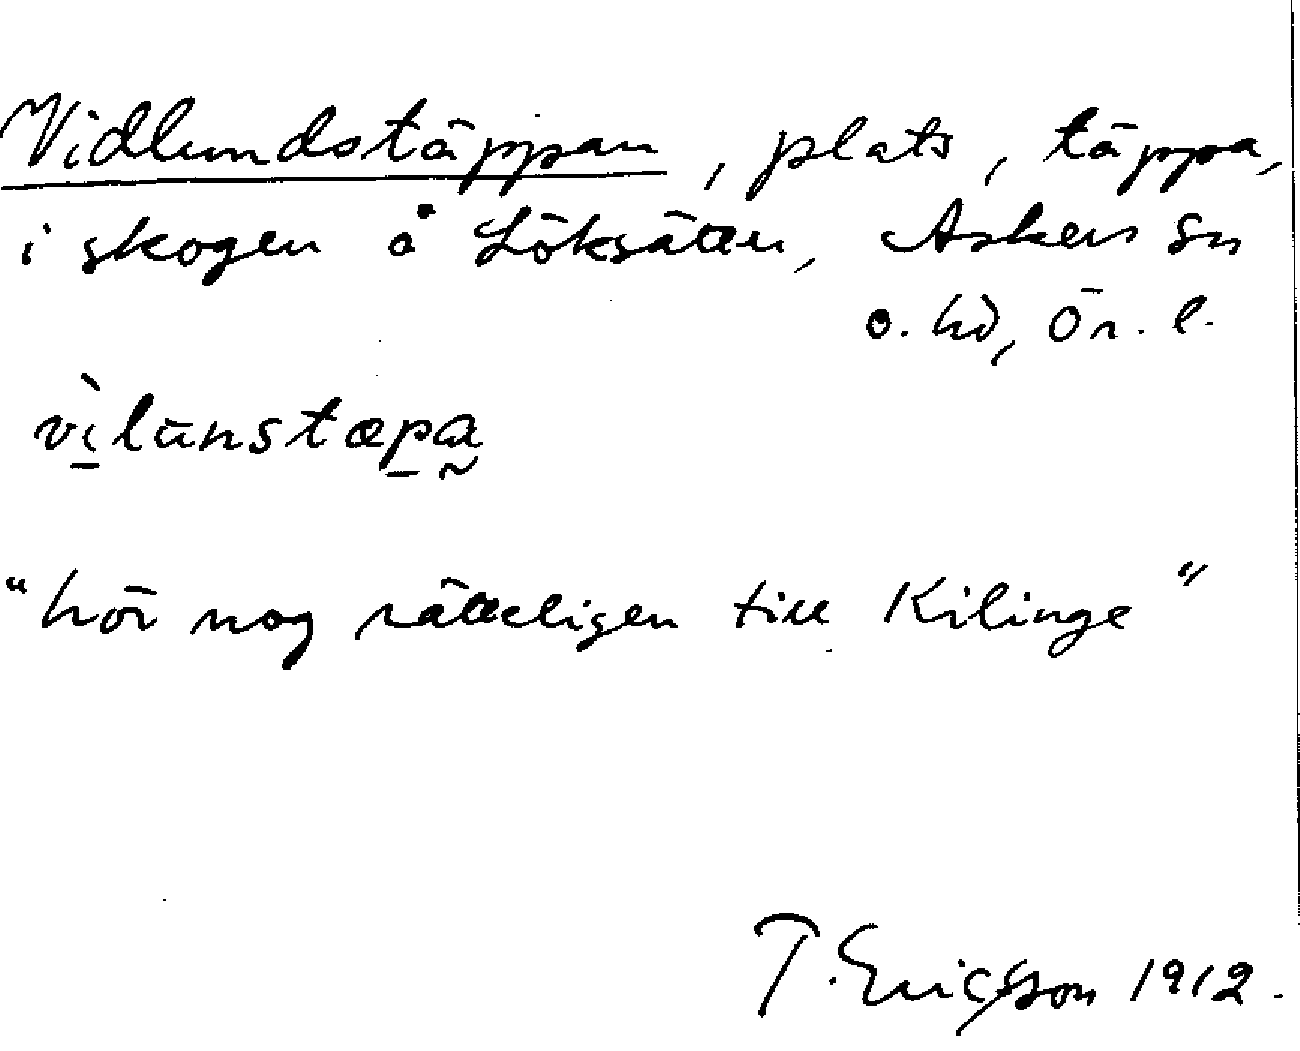 Vidlundstäppan, plats, täppa,
i skogen å Löksätter, Askers sn
o. hd, Ör. l.
vìlunstæpa
"hör nog rätteligen till Kilinge"
T. Ericsson 1912.